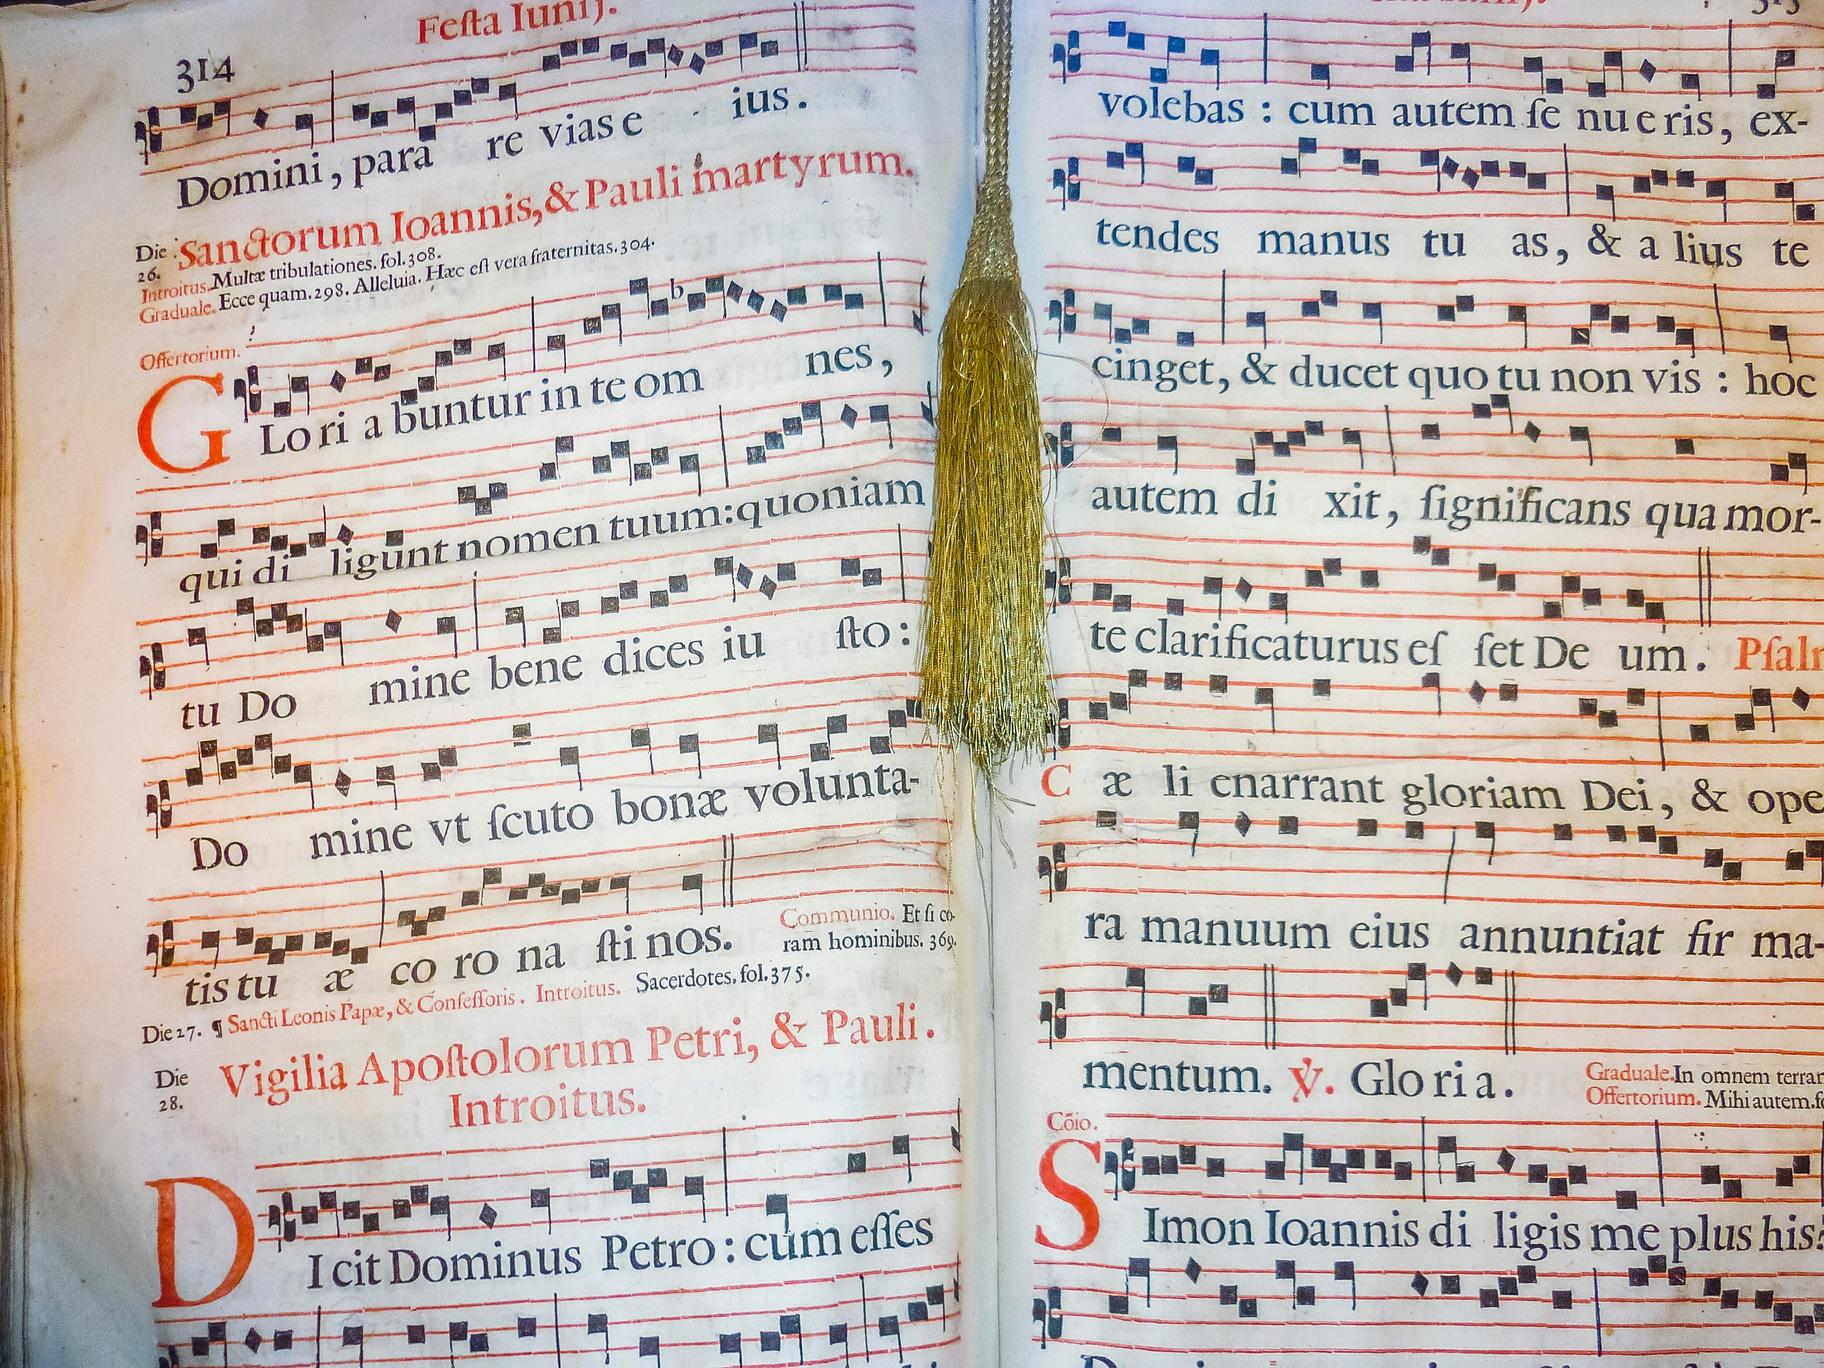 Festa Iunij.
314
Domini, para re vias e ius.
Sanctorum Ioannis, & Pauli martyrum.
Die 26.
Introitus. Multæ tribulationes. fol. 308.
Graduale. Ecce quam. 298. Alleluia. Hæc eſt vera fraternitas. 304.
Offertorium.
G Lo ri a buntur in te om nes,
qui di ligunt nomen tuum: quoniam
tu Do mine bene dices iu ſto:
Do mine vt ſcuto bonæ volunta-
tis tu æ co ro na ſti nos.
Communio. Et ſi co-
ram hominibus. 369.
Die 27. ¶ Sancti Leonis Papæ, & Confeſſoris. Introitus. Sacerdotes. fol. 375.
Die 28.
Vigilia Apoſtolorum Petri, & Pauli.
Introitus.
D I cit Dominus Petro: cum eſſes
volebas: cum autem ſe nu e ris, ex-
tendes manus tu as, & a lius te
cinget, & ducet quo tu non vis: hoc
autem di xit, ſignificans qua mor-
te clarificaturus eſ ſet De um. Pſalm
C æ li enarrant gloriam Dei, & ope
ra manuum eius annuntiat fir ma-
mentum. ℣. Glo ri a.
Graduale. In omnem terram
Offertorium. Mihi autem. fo
Cõio.
S Imon Ioannis di ligis me plus his?